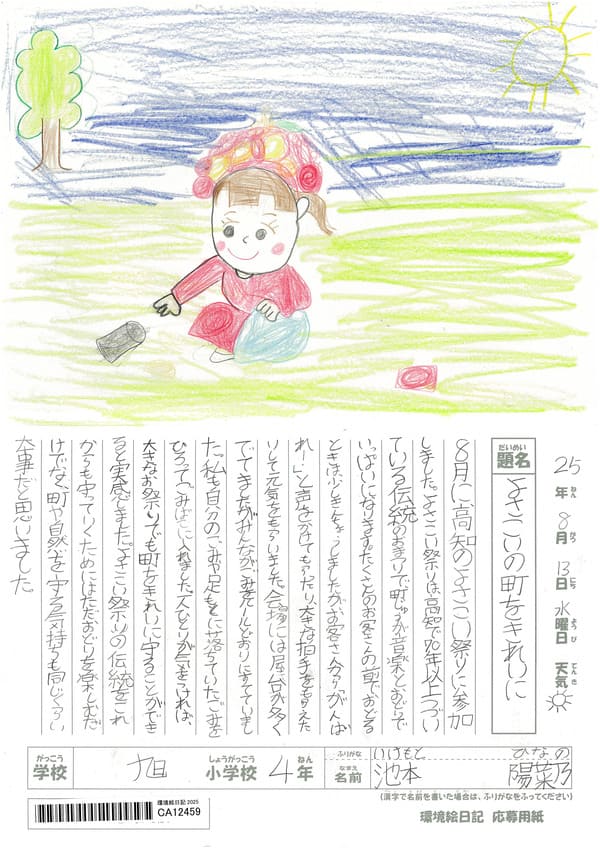 25年8月13日水曜日 天気
ねん がつ にち ようび てんき
だいめい
題名 よさこいの町をきれいに
8月に高知のよさこい祭りに参加
しました。よさこい祭りは高知で70年以上つづい
ている伝統のお祭りで、町じゅうが音楽とおどりで
いっぱいになります。たくさんのお客さんの前でおどる
ときは少しきんちょうしましたがお客さんから「がんば
れー!」と声をかけてもらったり大きな拍手をもらえた
りして元気をもらいました。会場には屋台が多く
でてましたがみんながごみを
すてていまし
た。私も自分のごみや足もとに落ちていたごみを
ひろってごみばこに入れました。一人ひとりが気をつければ、
大きなお祭りでも町をきれいに守ることができ
ると実感しました。よさこい祭りの伝統をこれ
からも守っていくためにはただおどりを楽しむだ
けでなく、町や自然を守る気持ちも同じくらい
大事だと思いました。
がっこう しょうがっこう ねん
学校 旭 小学校 4年
ふりがな いけもと ひなの
なまえ
名前 池本 陽菜乃
(漢字で名前を書いた場合は、ふりがなをふってください)
環境絵日記 2025
CA12459
環境絵日記 応募用紙